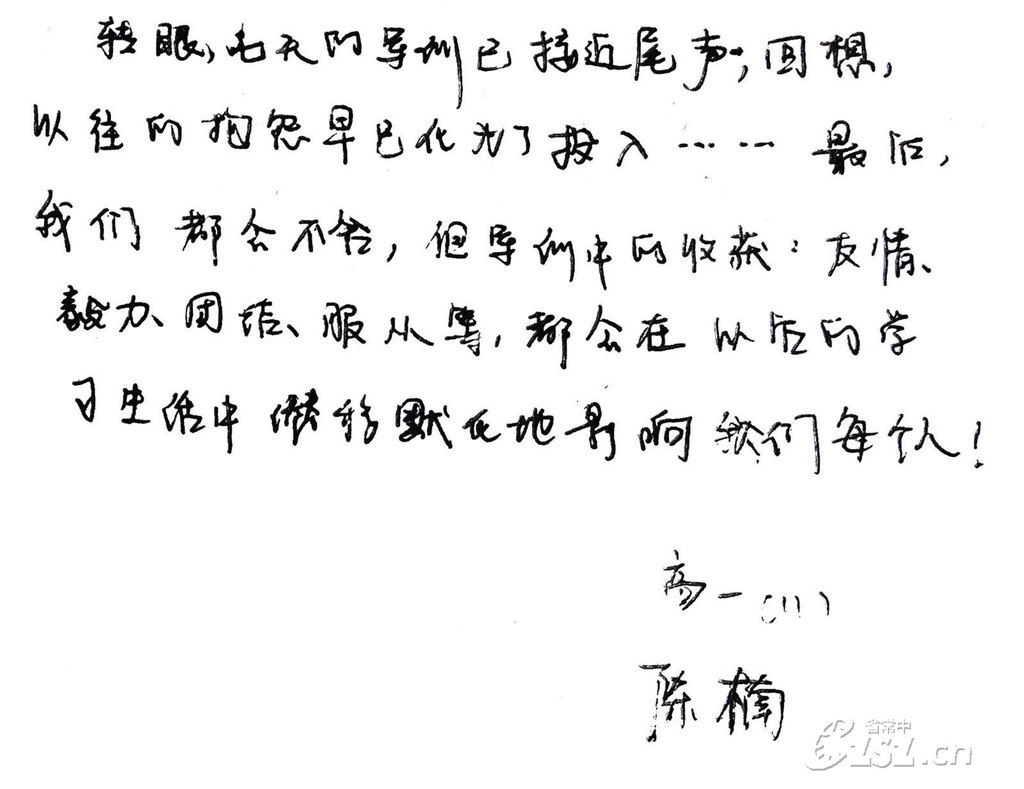 转眼,七天的军训已接近尾声,回想,
以往的抱怨早已化为了投入……最后,
我们都会不舍,但军训中的收获:友情、
毅力、团结、服从等,都会在以后的学
习生活中潜移默化地影响我们每个人!
高一(1)
陈楠
省常中
CZSZ.cn